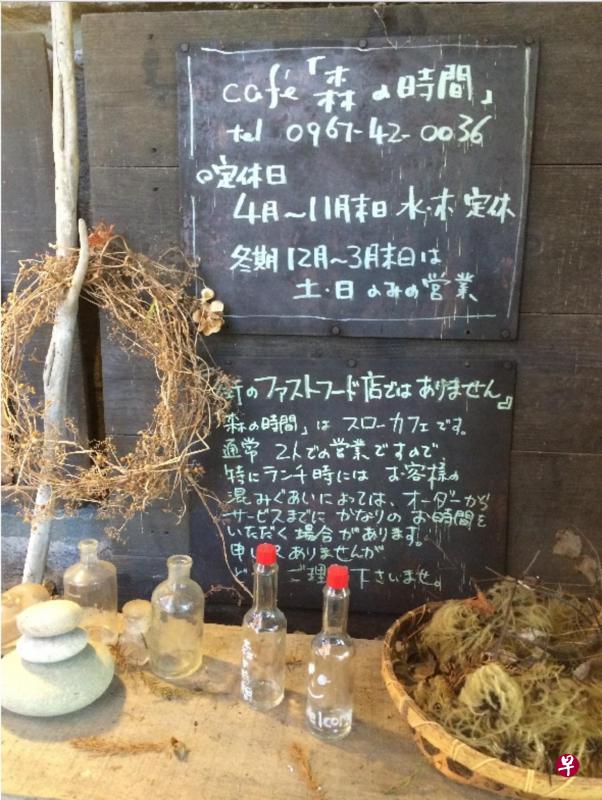 café「森の時間」
tel 0967-42-0036
○定休日
4月～11月末日 水・木 定休
冬期 12月～3月末日は
土・日のみの営業
街のファストフード店ではありません。
森の時間」は スローカフェです。
通常 2人での営業ですので
特にランチ時には お客様の
混みぐあいによっては、オーダーから
サービスまでに かなりの お時間を
いただく 場合が あります。
申し訳 ありませんが
ご理 下さいませ。
森の時間
elcom
早